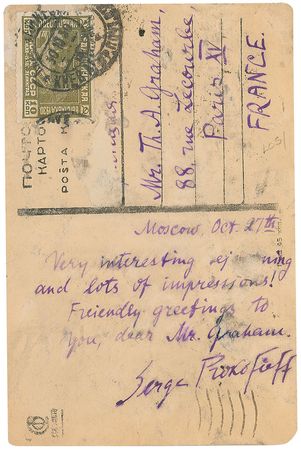 Mr. Th. A. Graham,
88, rue Lecourbe,
Paris XV
FRANCE.
ПОЧТО
КАРТО
POŠTA
Moscow, Oct 27th
Very interesting
and lots of impressions!
Friendly greetings to
you, dear Mr. Graham.
Serge Prokofieff